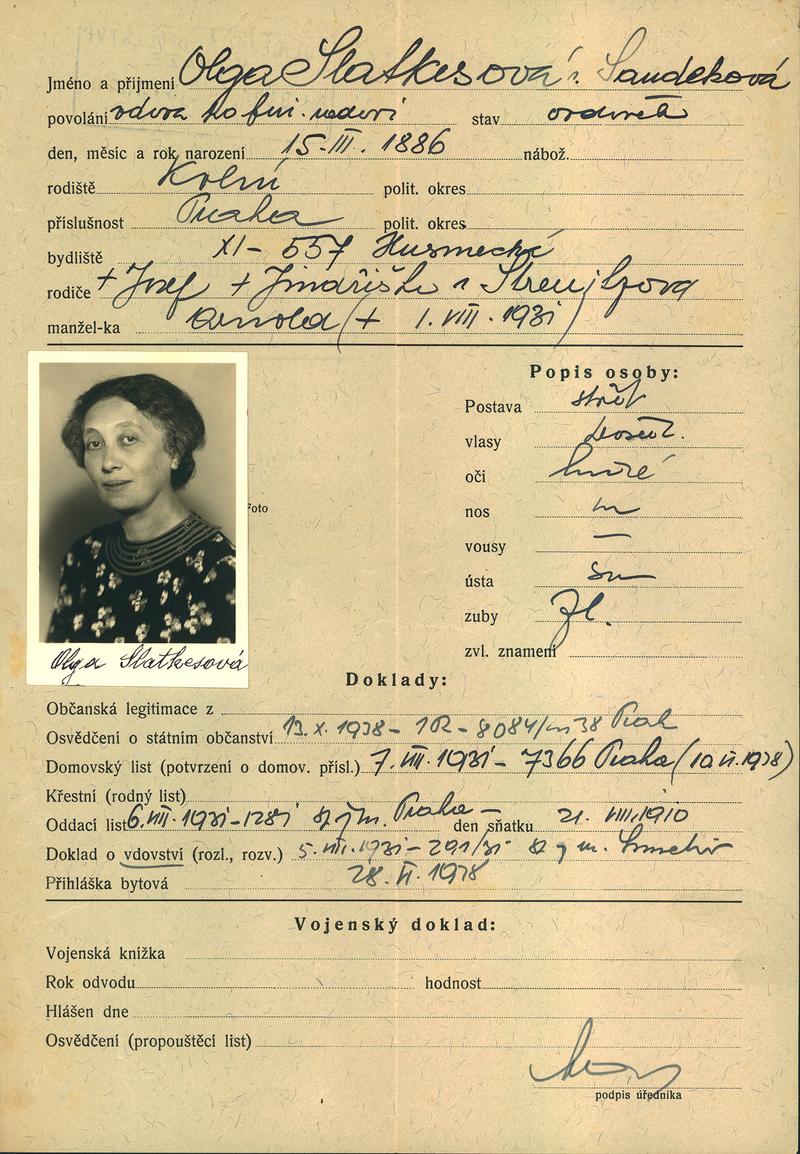 Jméno a příjmení Olga Slatkesová r. Sandeková
povolání vdova po fin. stav ovdověl
den, měsíc a rok narození 15. III. 1886 nábož.
rodiště Kolín polit. okres
příslušnost Praha polit. okres
bydliště XI - 557 Husinecká
rodiče + Josef + Jindřiška r
manžel-ka Arnold (+ 1. VIII. 1931)
Popis osoby:
Postava střed
vlasy prošed.
oči hnědé
nos
vousy —
ústa
zuby zl.
zvl. znamení
Foto
Olga Slatkesová
Doklady:
Občanská legitimace z
Osvědčení o státním občanství 13. X. 1938 - 1R - 8084/ 38 Prah
Domovský list (potvrzení o domov. přísl.) 7. VIII. 1931 - 7366 Praha (10 VI. 1938)
Křestní (rodný list)
Oddací list 6. VIII. 1931 - 1281 Praha - den sňatku 21. VIII. 1910
Doklad o vdovství (rozl., rozv.) 5. VIII. 1931 - 291/31 Smíchov
Přihláška bytová 28. VI. 1938
Vojenský doklad:
Vojenská knížka
Rok odvodu hodnost
Hlášen dne
Osvědčení (propouštěcí list)
podpis úředníka